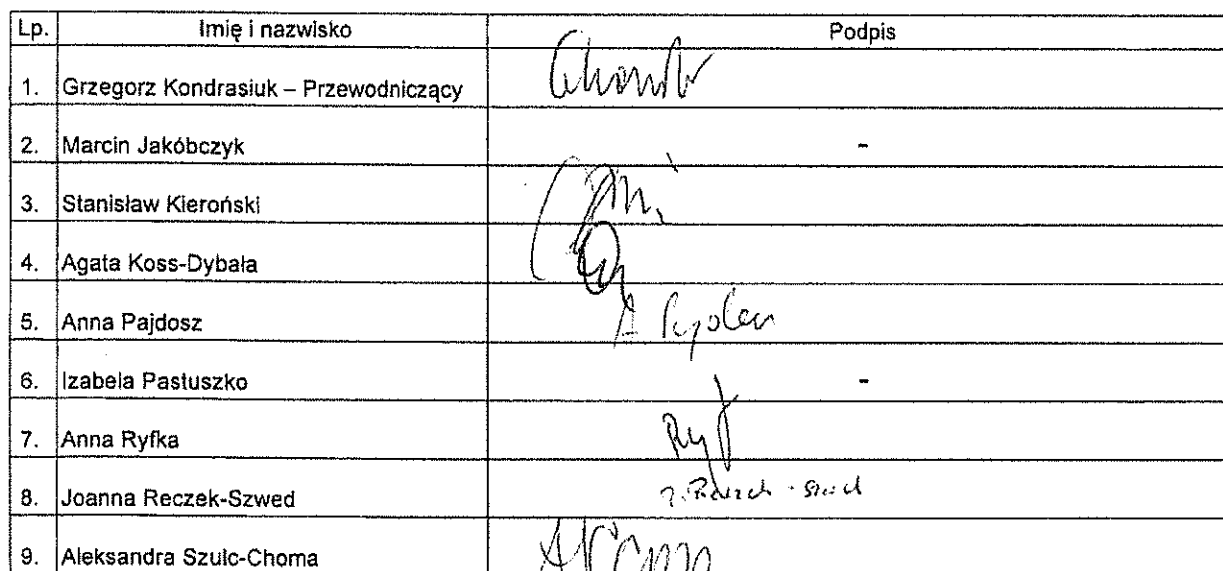 Lp. Imię i nazwisko Podpis
1. Grzegorz Kondrasiuk – Przewodniczący
2. Marcin Jakóbczyk -
3. Stanisław Kieroński
4. Agata Koss-Dybała
5. Anna Pajdosz A.
6. Izabela Pastuszko -
7. Anna Ryfka Ryf
8. Joanna Reczek-Szwed
9. Aleksandra Szulc-Choma